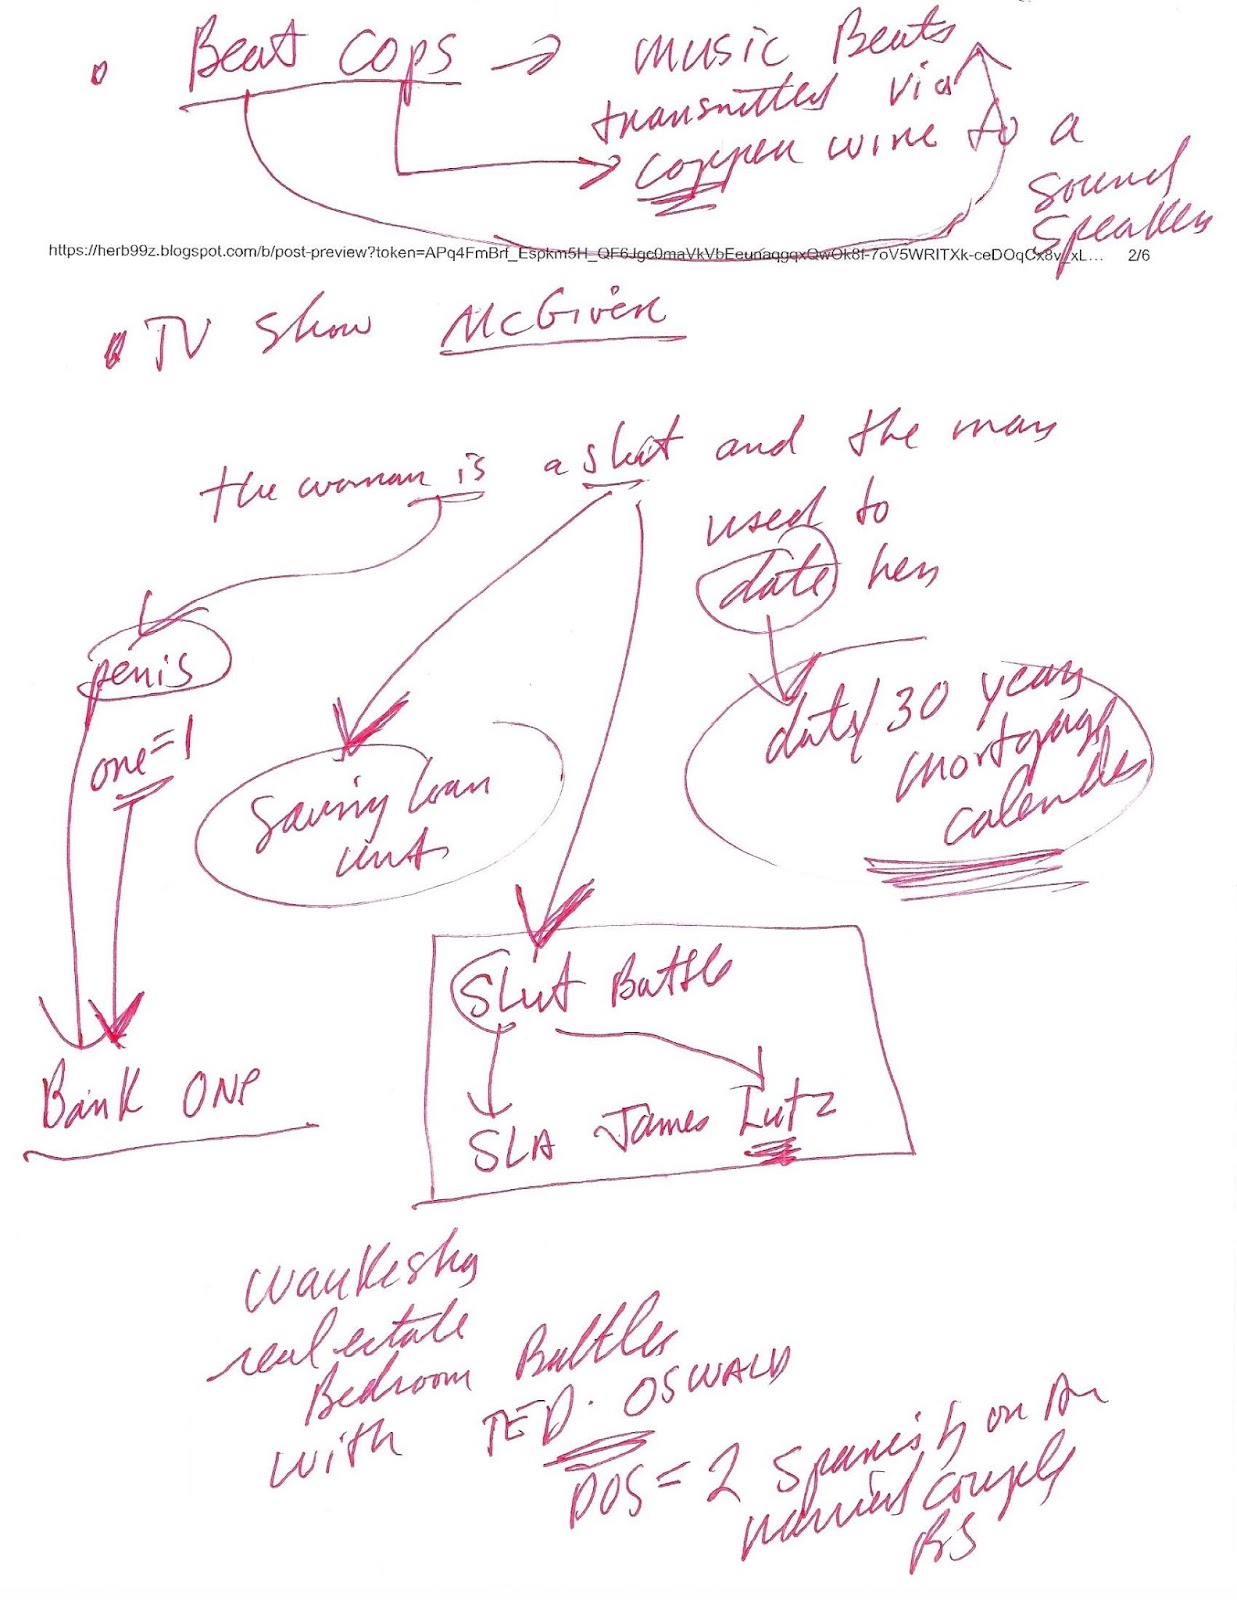 Beat Cops → music Beats
transmitted via
copper wire to a
sound
speaker
https://herb99z.blogspot.com/b/post-preview?token=APq4FmBrf_Espkm5H_QF6Jgc0maVkVbEeunaqgqxQwOk8f-7oV5WRITXk-ceDOqCx8v_xL... 2/6
TV Show McGiver
the woman is a slut and the man
used to
date her
penis
one=1
date/30 years
mortgage
calendar
Saving loan
unit
Slut Battle
Bank One
SLA James Lutz
Waukesha
real estate
Bedroom Battles
with TED. OSWALD
DOS = 2 Spanish on
married couple
BS